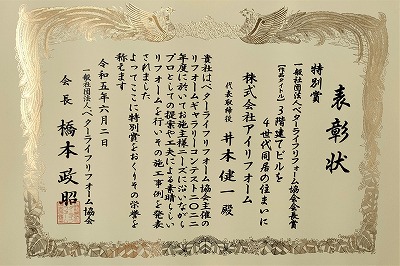 表彰状
特別賞
一般社団法人ベターライフリフォーム協会会長賞
【作品タイトル】3階建てビルを
4世代同居の住まいに
株式会社アイリフォーム
代表取締役 井木健一殿
貴社はベターライフリフォーム協会主催の
リフォームギャラリーコンテスト2022
年度に於いてお施主様ニーズに沿いながら
プロとしての提案や工夫による素晴らしい
リフォームを行いその施工事例を発表
されました
よってここに特別賞をおくりその栄誉を
称えます
令和五年六月二日
一般社団法人ベターライフリフォーム協会
会長 橋本政昭